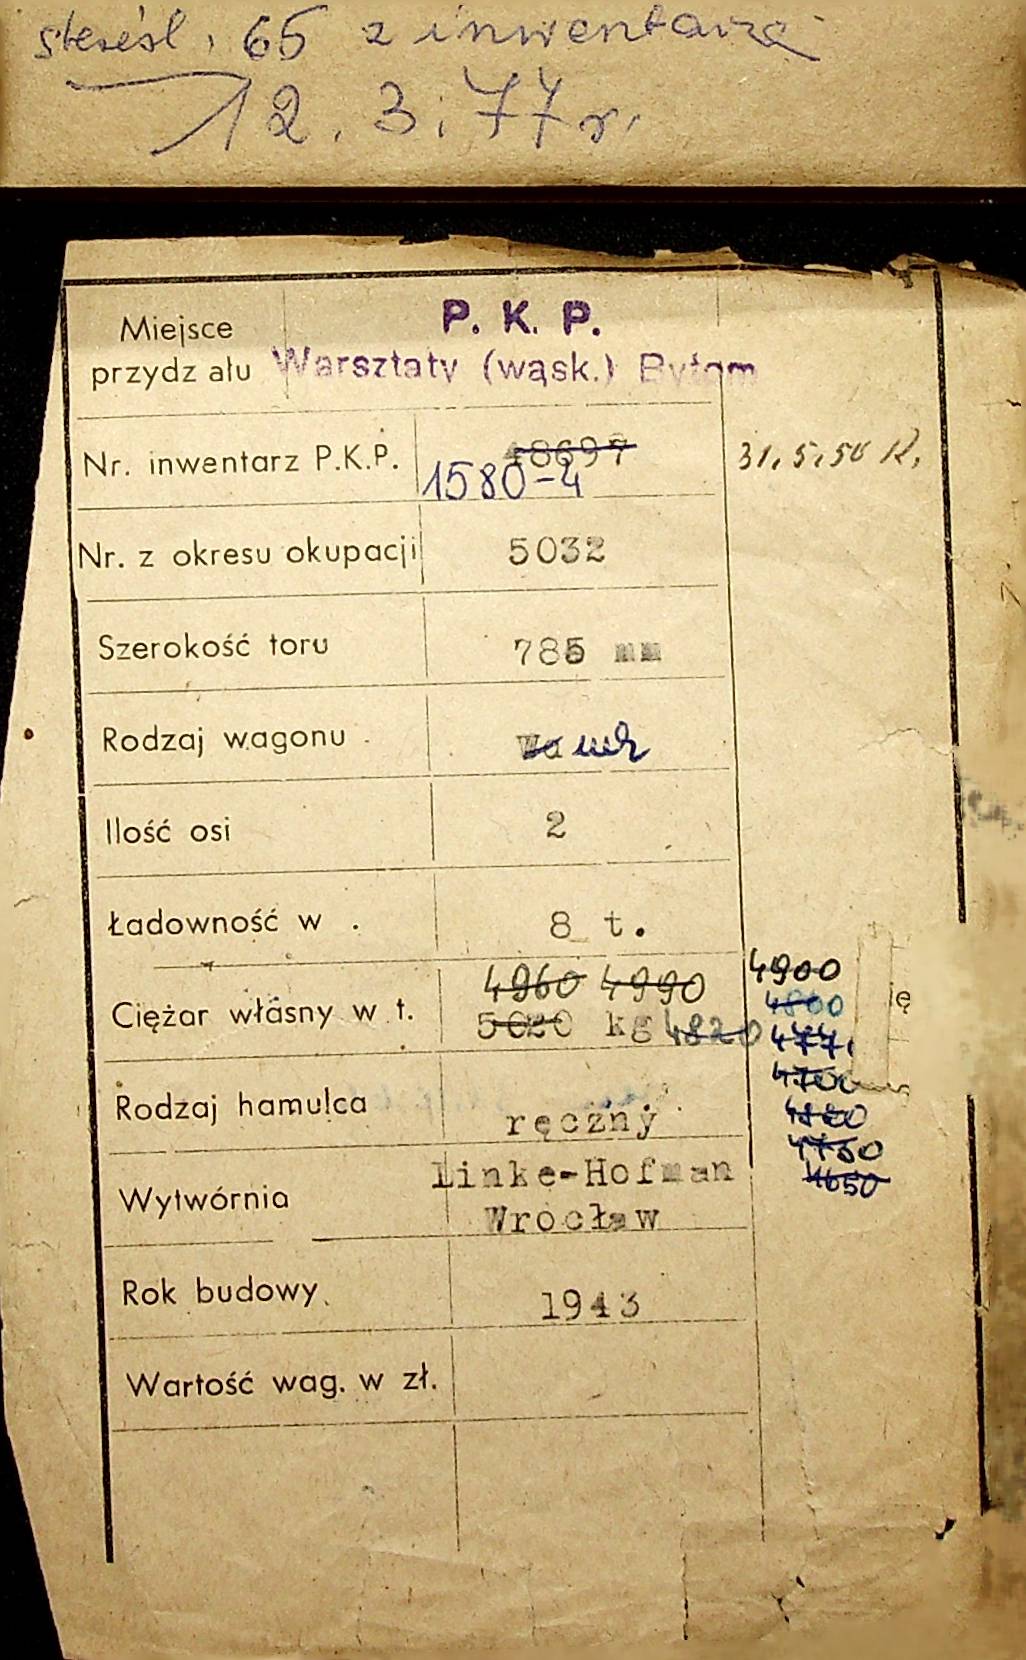 65 z inwentarza
12.3.77 r.
P. K. P.
Miejsce
przydz ału Warsztaty (wąsk.) Bytom
48697
Nr. inwentarz P.K.P. 1580-4 31.5.50 R.
Nr. z okresu okupacji 5032
Szerokość toru 785 mm
Rodzaj wagonu Wa
Ilość osi 2
Ładowność w . 8 t.
4960 4990 4900
4800 ię
Ciężar własny w t. 5020 kg 4820
4700
Rodzaj hamulca ręczny
4750
4650
Wytwórnia Linke-Hofman
Wrocław
Rok budowy 1943
Wartość wag. w zł.